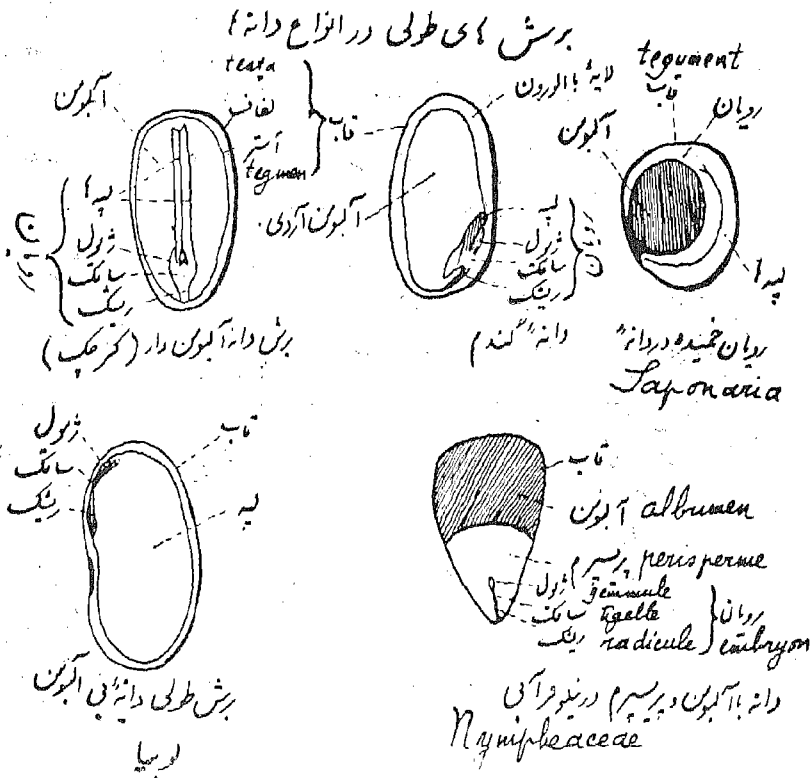 برش های طولی در انواع دانه ها
testa
لفاف
آستر
tegmen
قاب
آلبومن
لپه ها
ژمول
ساقک
ریشک
رویان
برش دانه آلبومن دار (کرچک)
لایهٔ با آلورون
قاب
آلبومن آردی
لپه
ژمول
ساقک
ریشک
رویان
دانهٔ گندم
tegument
قاب
رویان
آلبومن
لپه ها
رویان خمیده در دانهٔ
Saponaria
ژمول
ساقک
ریشک
قاب
لپه
برش طولی دانهٔ بی آلبومن
لوبیا
قاب
آلبومن albumen
پریسپرم perisperme
ژمول gemmule
ساقک tigelle
ریشک radicule
رویان
embryon
دانه با آلبومن و پریسپرم در نیلوفر آبی
Nympheaceae